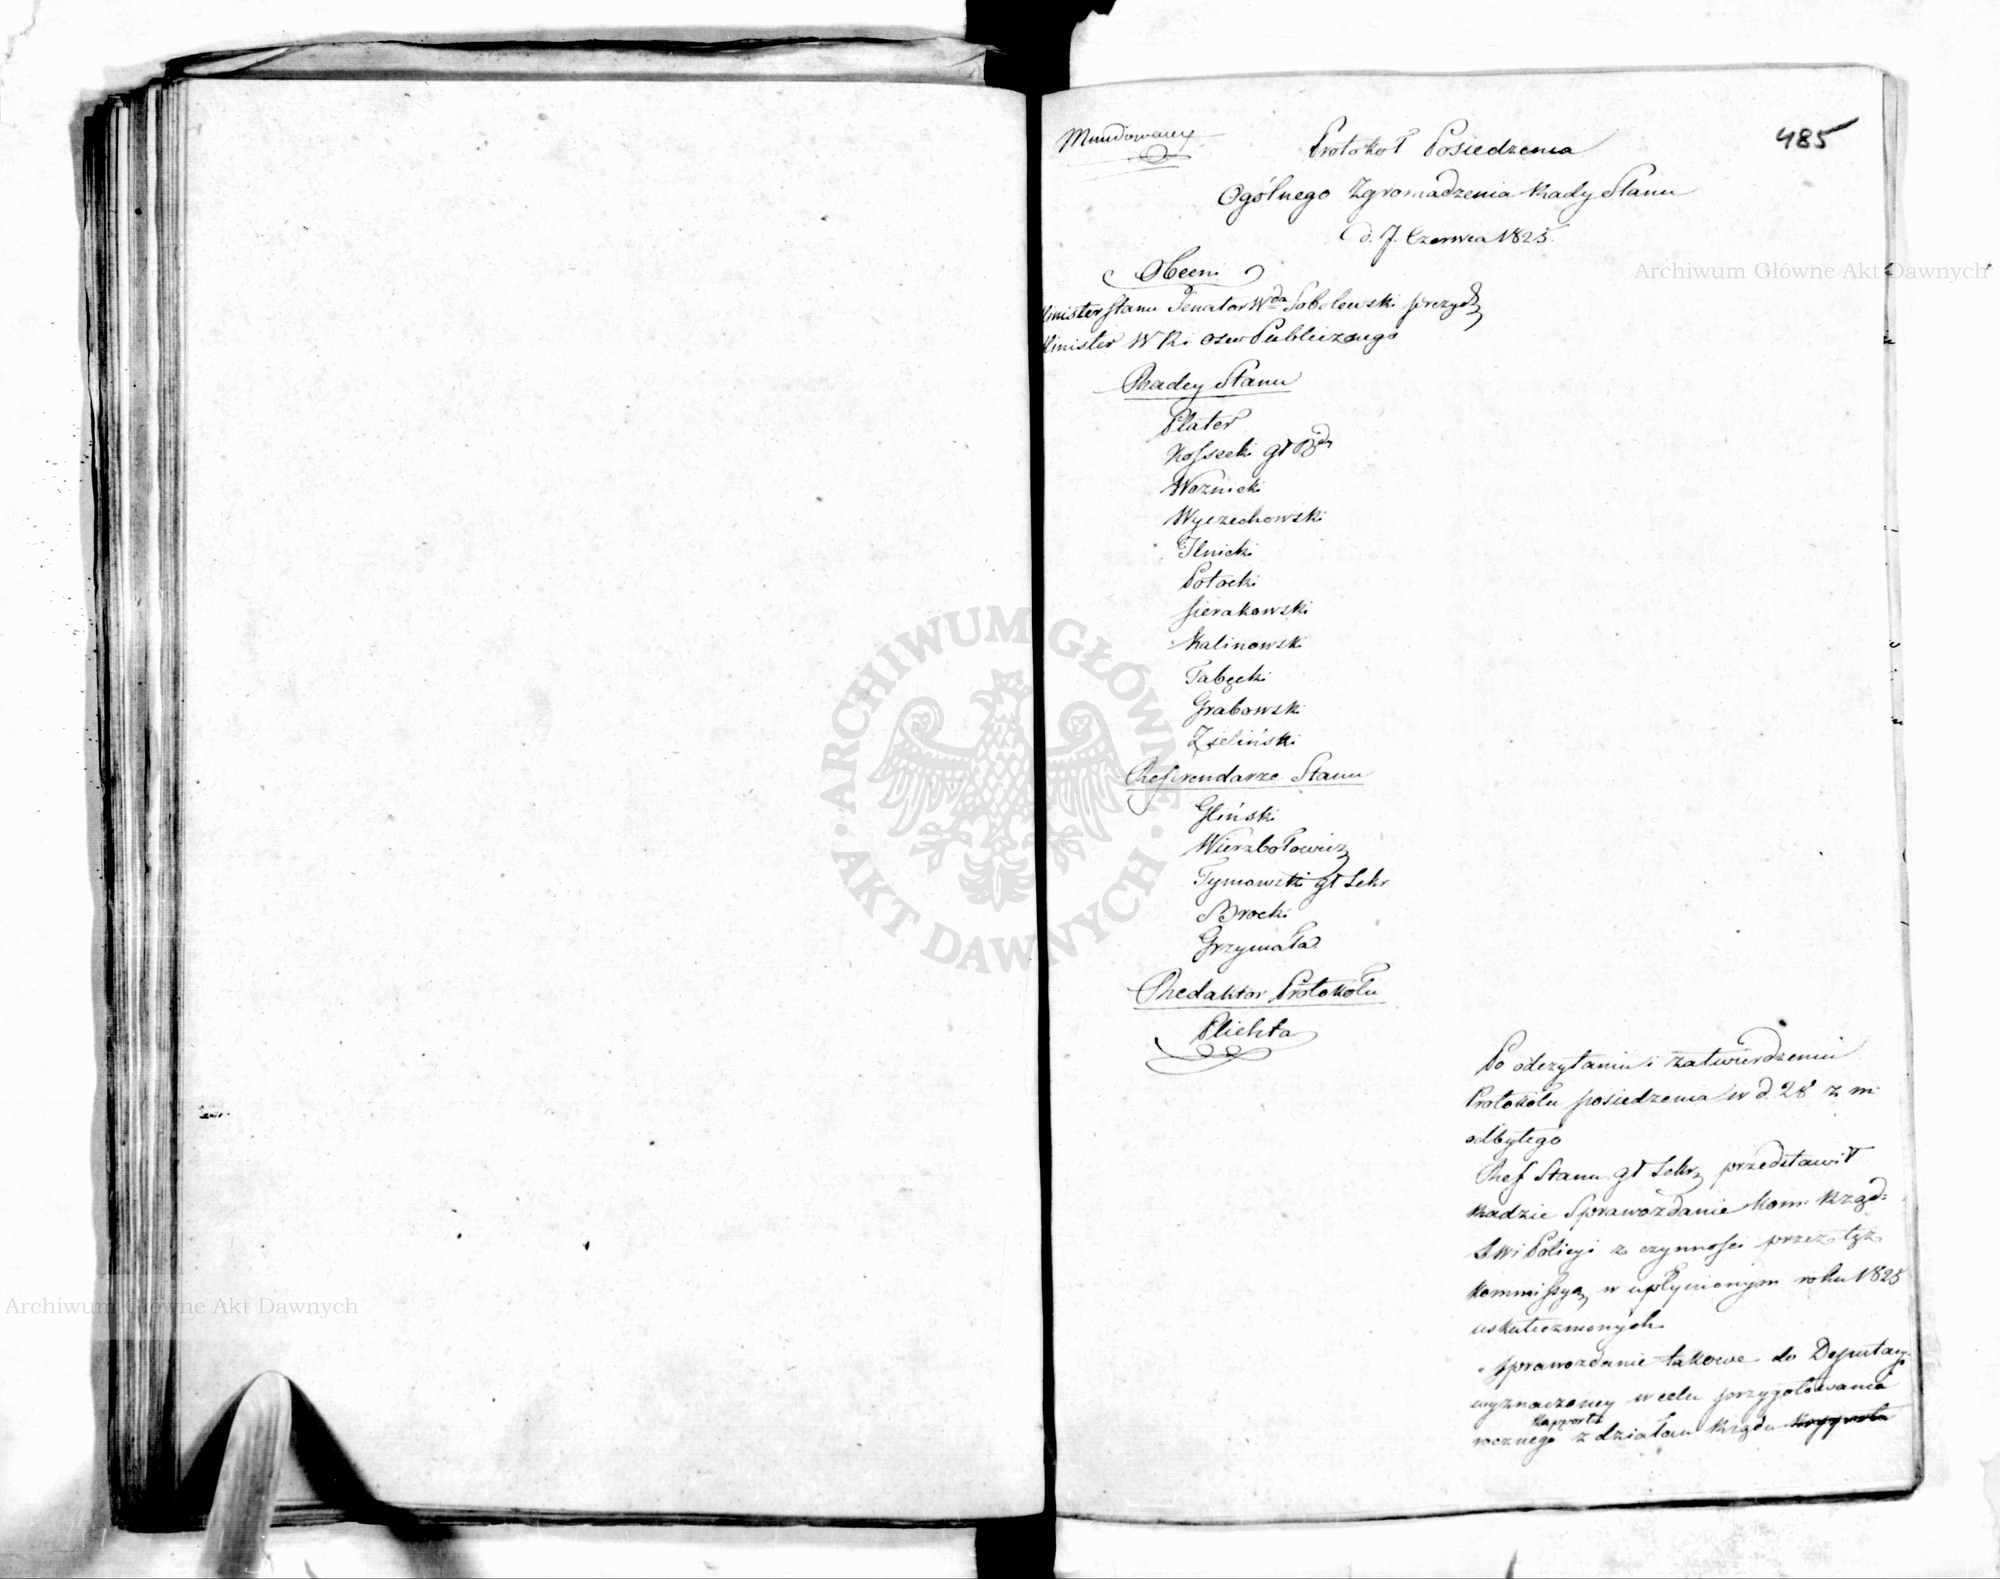 Mundowany
485
Protokoł Posiedzenia
Ogólnego Zgromadzenia Rady Stanu
d. 7. Czerwca 1825.
Obecni
Minister Stanu Senator Wda Sobolewski prezyd
Minister WR i Ośw Publicznego
Radcy Stanu
Plater
Kossecki
Woźnicki
Wyczechowski
Ilnicki
Potocki
Sierakowski
Kalinowski
Tabęcki
Grabowski
Zieliński
Referendarze Stanu
Gliński
Wierzbołowicz
Tymowski gł Sekr
Brocki
Grzymała
Redaktor Protokołu
Plichta
Po odczytaniu i zatwierdzeniu
Protokołu posiedzenia w d. 28 z m
odbytego
Ref Stanu gł Sekr przedstawił
Radzie Sprawozdanie Kom: Rząd:
S W i Policyi z czynności przez tęż
Kommissyą w upłynionym roku
uskutecznionych
Sprawozdanie takowe do Deputacyi
wyznaczoney w celu przygotowania
Rapportu
rocznego z działań Rządu
ARCHIWUM GŁÓWNE AKT DAWNYCH
Archiwum Główne Akt Dawnych
Archiwum Główne Akt Dawnych